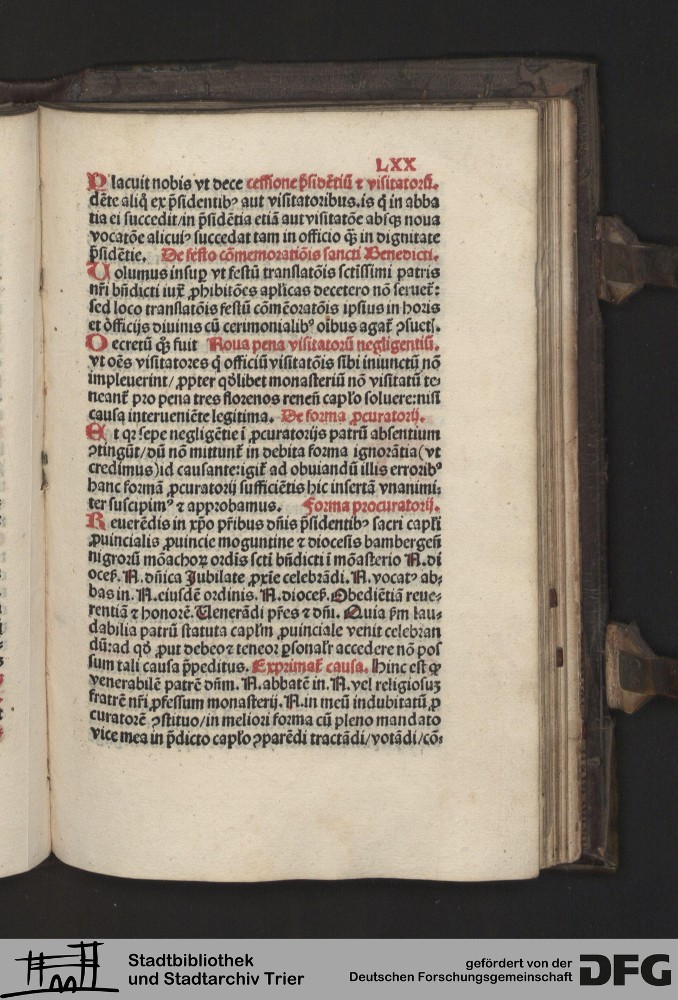 LXX
Placuit nobis vt dece cessione p̃sidẽtiũ ⁊ visitatorũ.
dẽte aliq̃ ex p̃sidentibꝰ aut visitatoribus.is q̃ in abba
tia ei succedit/in p̃sidẽtia etiã aut visitatõe absqꝫ noua
vocatõe alicuiꝰ succedat tam in officio q̃ꝫ in dignitate
p̃sidẽtie. De festo cõmemoratiõis sancti Benedicti.
Uolumus insuꝑ vt festũ translatõis sctissimi patris
nr̃i bñdicti iuxͭ ꝓhibitões apl̃icas decetero nõ serueͭ:
sed loco translatõis festũ cõmẽoratõis ipsius in horis
et officijs diuinis cũ cerimonialibꝰ oĩbus agaͭ ꝯsuetꝭ.
Decretũ qꝫ fuit Noua pena visitatorũ negligentiũ.
vt oẽs visitatores q̃ officiũ visitatõis sibi iniunctũ nõ
impleuerint/ꝓpter qd̾libet monasteriũ nõ visitatũ te⸗
neantͭ pro pena tres florenos reneñ capl̃o soluere:nisi
causa interueniẽte legitima. De forma ꝓcuratorij.
Et qꝛ sepe negligẽtie ĩ ꝓcuratorijs patrũ absentium
ꝯtingũt/dũ nõ mittuntͭ in debita forma ignorãtia(vt
credimus)id causante:igiͭ ad obuiandũ illis erroribꝰ
hanc formã ꝓcuratorij sufficiẽtis hic insertã vnanimi⸗
ter suscipimꝰ ⁊ approbamus. Forma procuratorij.
Reuerẽdis in xp̃o pr̃ibus dñis p̃sidentibꝰ sacri capl̃i
ꝓuincialis ꝓuincie moguntine ⁊ diocesis bambergeñ
nigrorũ mõachoꝝ ordĩs scti bñdicti ĩ mõasterio N.di
oceß. N. dñica Jubilate ꝓxĩe celebrãdi. N. vocatꝰ ab⸗
bas in. N.eiusdẽ ordinis. N.dioceß.Obediẽtiã reue⸗
rentiã ⁊ honorẽ. Uenerãdi pr̃es ⁊ dñi. Quia ẜm lau⸗
dabilia patrũ statuta capl̃m ꝓuinciale venit celebran
dũ:ad qd̾ put debeo ⁊ teneor ꝑsonalͬ accedere nõ pos
sum tali causa p̃peditus. Exprimatͭ causa. Hinc est ꝙ
venerabilẽ patrẽ dñm. N.abbatẽ in. N.vel religiosuꝫ
fratrẽ nr̃i ꝓfessum monasterij. N.in meũ indubitatũ ꝓ
curatorẽ ꝯstituo/in meliori forma cũ pleno mandato
vice mea in p̃dicto capl̃o ꝯparẽdi tractãdi/votãdi/cõ⸗
Stadtbibliothek
und Stadtarchiv Trier
gefördert von der
Deutschen Forschungsgemeinschaft
DFG